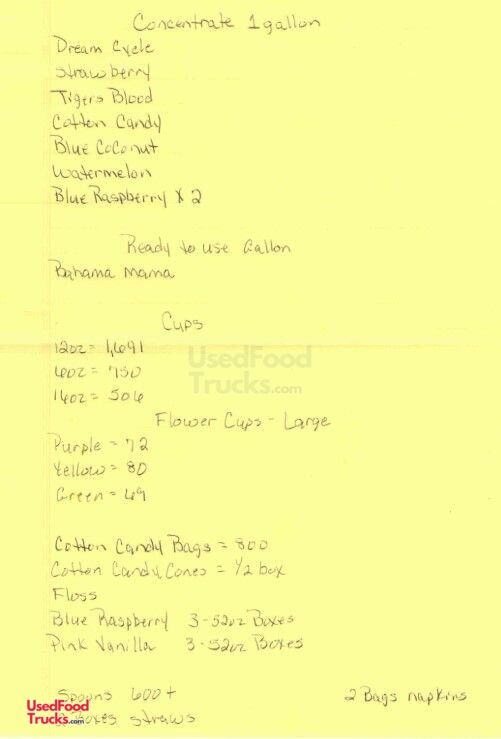 Concentrate 1 gallon
Dream Cycle
Strawberry
Tigers Blood
Cotton Candy
Blue Coconut
Watermelon
Blue Raspberry x 2
Ready to use Gallon
Bahama Mama
Cups
12oz = 1,691
6oz = 750
16oz = 506
UsedFood
Trucks.com
Flower Cups - Large
Purple = 72
Yellow = 80
Green = 69
Cotton Candy Bags = 800
Cotton Candy Cones = 1/2 box
Floss
Blue Raspberry 3-52oz Boxes
Pink Vanilla 3-52oz Boxes
Spoons 600+ 2 Bags napkins
Boxes straws
UsedFood
Trucks.com